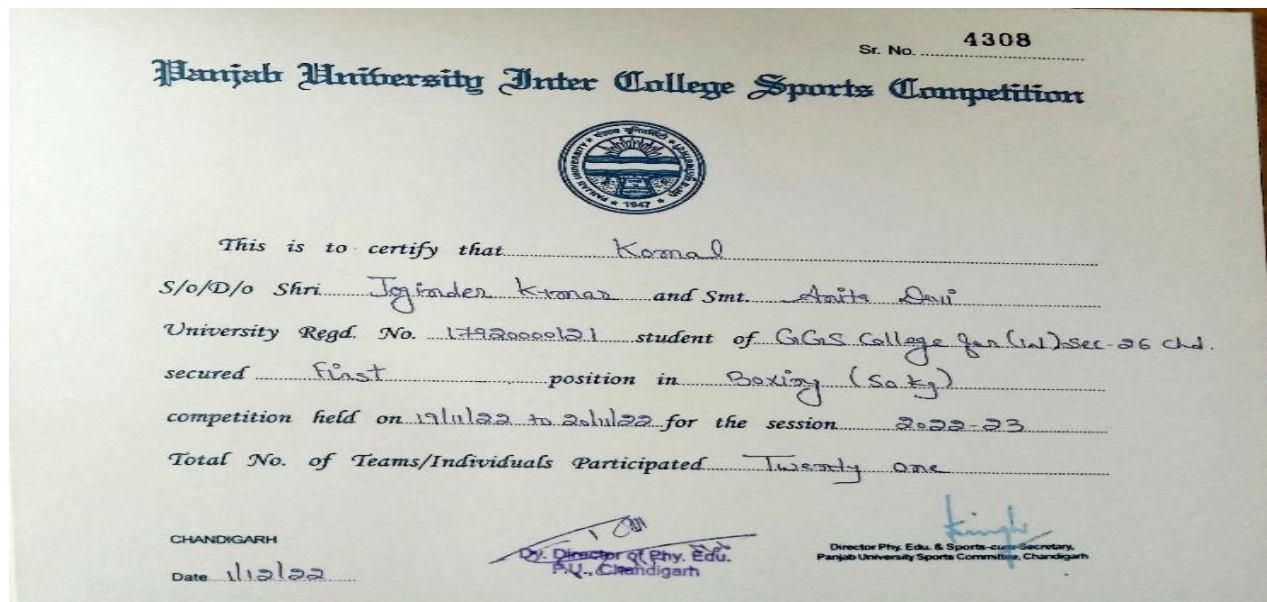 Sr. No. 4308
Panjab University Inter College Sports Competition
PANJAB UNIVERSITY
1947
This is to certify that Komal
S/o/D/o Shri Joginder Kumar and Smt. Anita Devi
University Regd. No. 17920000121 student of GGS College for (W) Sec-26 Chd.
secured First position in Boxing (50 kg)
competition held on 19/11/22 to 20/11/22 for the session 2022-23
Total No. of Teams/Individuals Participated Twenty one
CHANDIGARH
Date 1/12/22
Dy. Director of Phy. Edu.
P.U., Chandigarh
Director Phy. Edu. & Sports-cum-Secretary,
Panjab University Sports Committee, Chandigarh